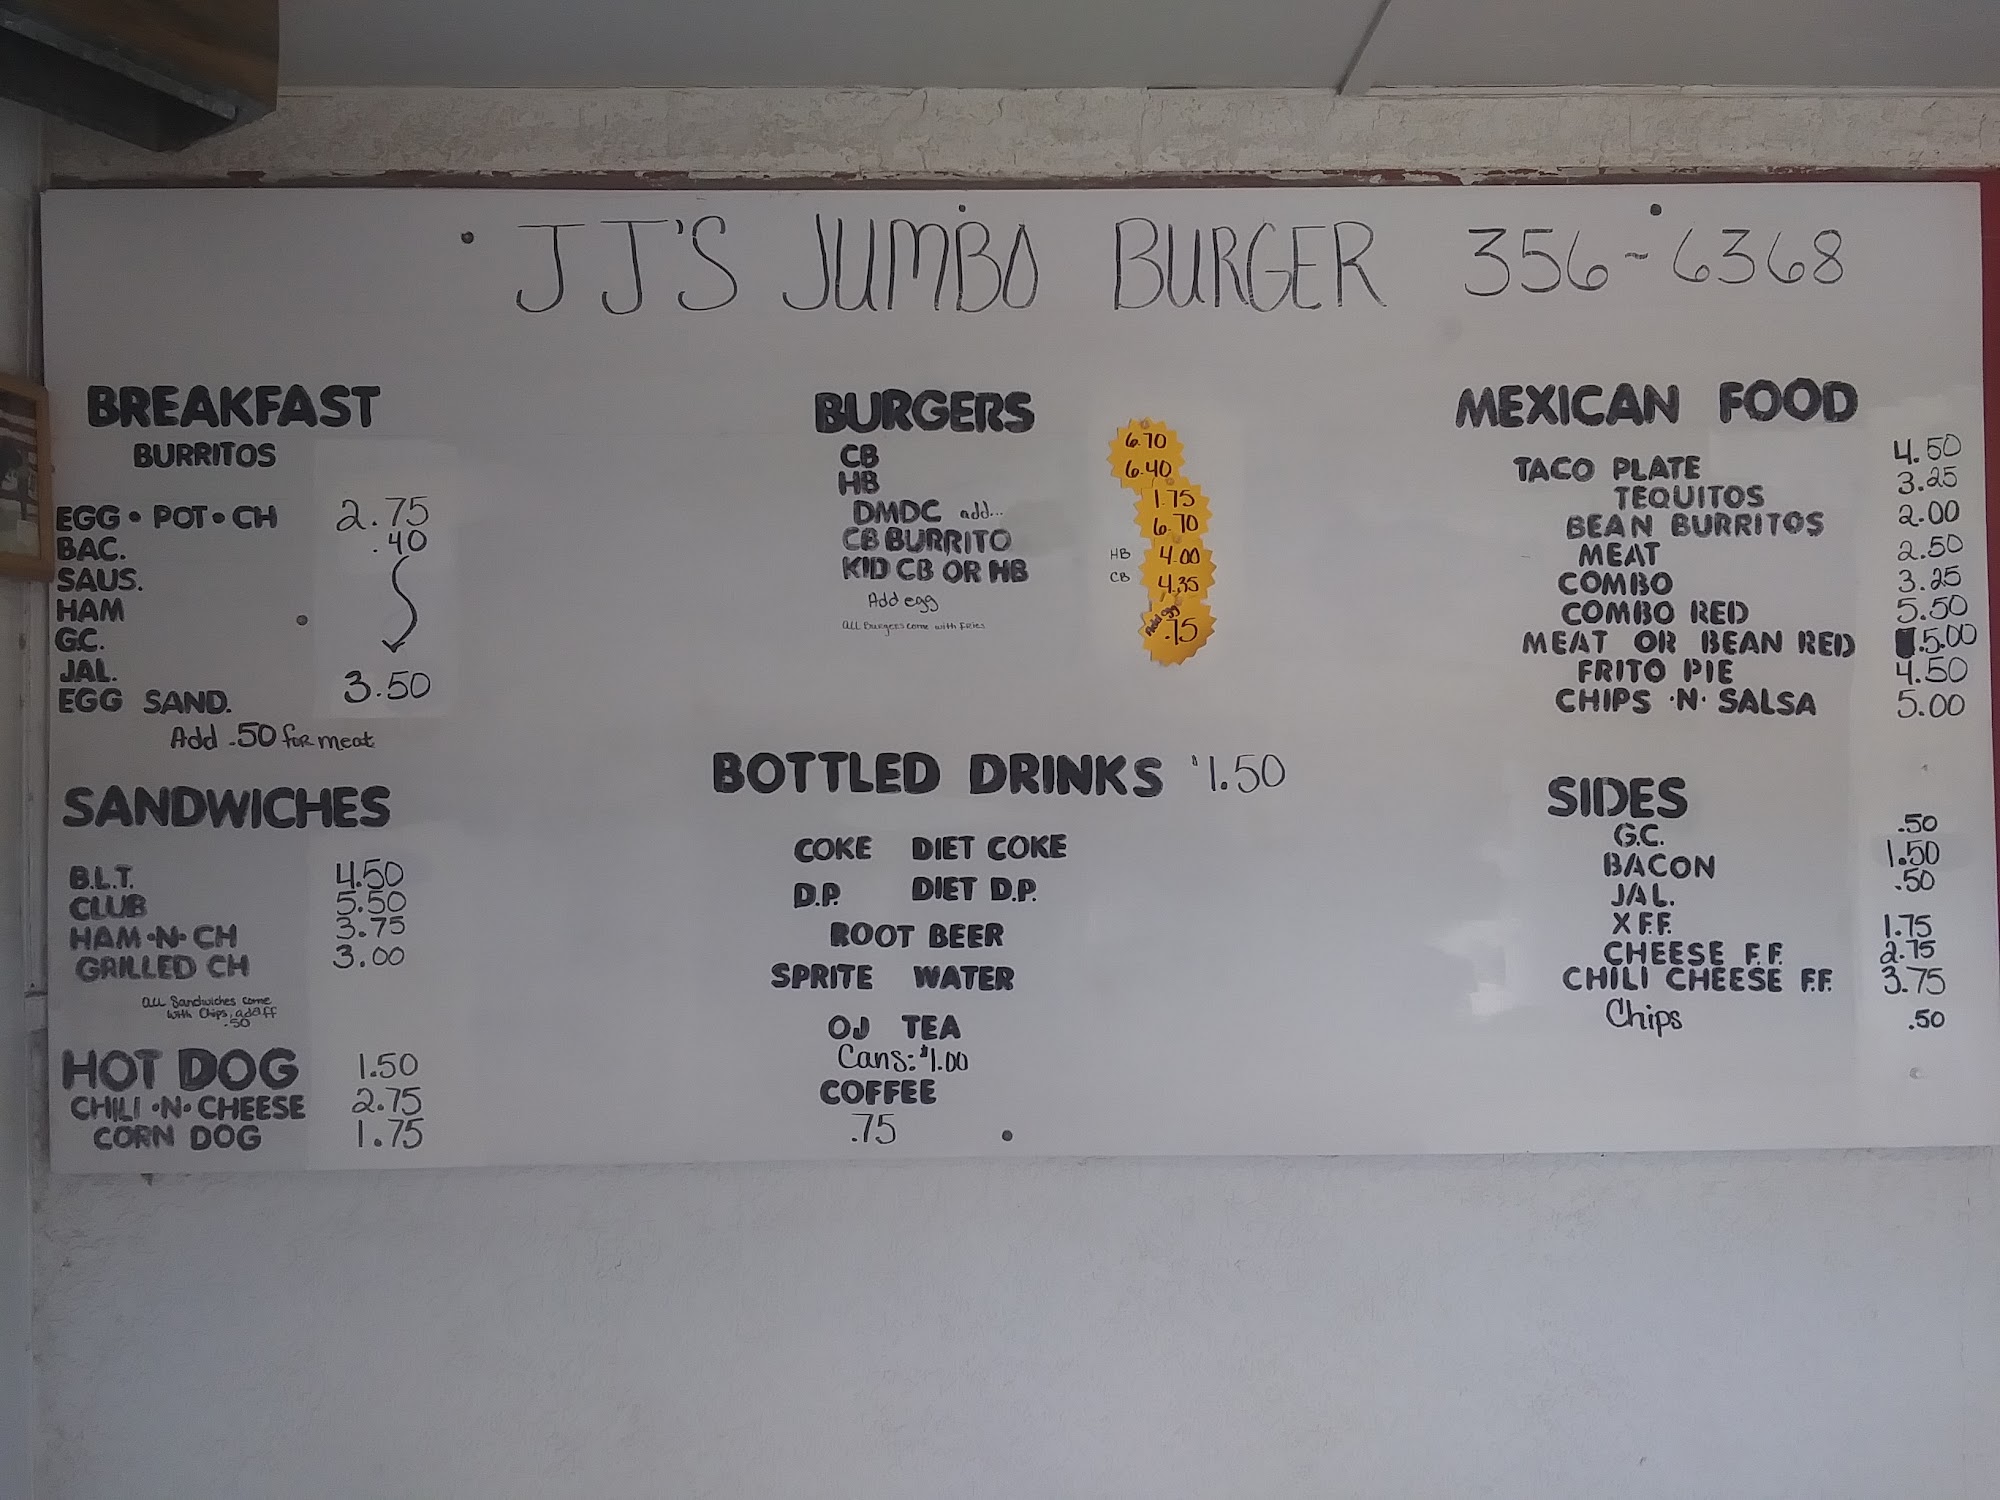 JJ'S JUMBO BURGER 356-6368
BREAKFAST
BURRITOS
EGG • POT • CH 2.75
BAC. .40
SAUS.
HAM
G.C.
JAL.
EGG SAND. 3.50
Add .50 for meat
SANDWICHES
B.L.T. 4.50
CLUB 5.50
HAM •N• CH 3.75
GRILLED CH 3.00
All Sandwiches come
with Chips, add FF
.50
HOT DOG 1.50
CHILI •N• CHEESE 2.75
CORN DOG 1.75
BURGERS
CB 6.70
HB 6.40
DMDC add... 1.75
CB BURRITO 6.70
KID CB OR HB HB 4.00
CB 4.35
Add egg Add egg .75
All Burgers come with Fries
BOTTLED DRINKS $1.50
COKE DIET COKE
D.P. DIET D.P.
ROOT BEER
SPRITE WATER
OJ TEA
Cans: $1.00
COFFEE
.75
MEXICAN FOOD
TACO PLATE 4.50
TEQUITOS 3.25
BEAN BURRITOS 2.00
MEAT 2.50
COMBO 3.25
COMBO RED 5.50
MEAT OR BEAN RED 5.00
FRITO PIE 4.50
CHIPS •N• SALSA 5.00
SIDES
G.C. .50
BACON 1.50
JAL. .50
X F.F. 1.75
CHEESE F.F. 2.75
CHILI CHEESE F.F. 3.75
Chips .50